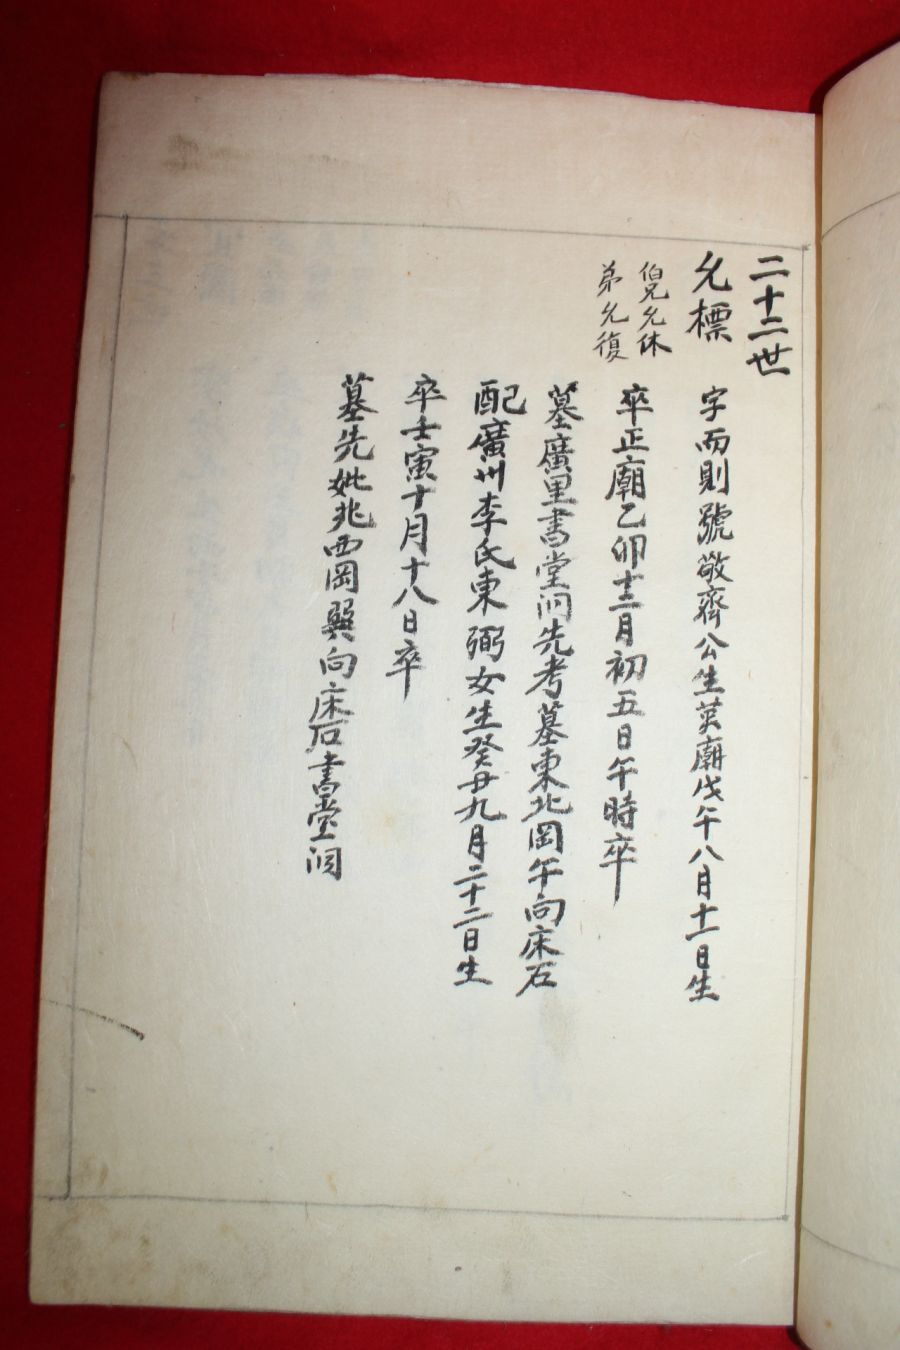 二十二世
允標
字而則號敬齋公生英廟戊午八月十一日生
伯兄允休
弟允復
卒正廟乙卯十二月初五日午時卒
墓廣里書堂洞先考墓東北岡午向床石
配廣州李氏東弼女生癸丑九月二十二日生
卒壬寅十月十八日卒
墓先妣兆西岡巽向床石書堂洞